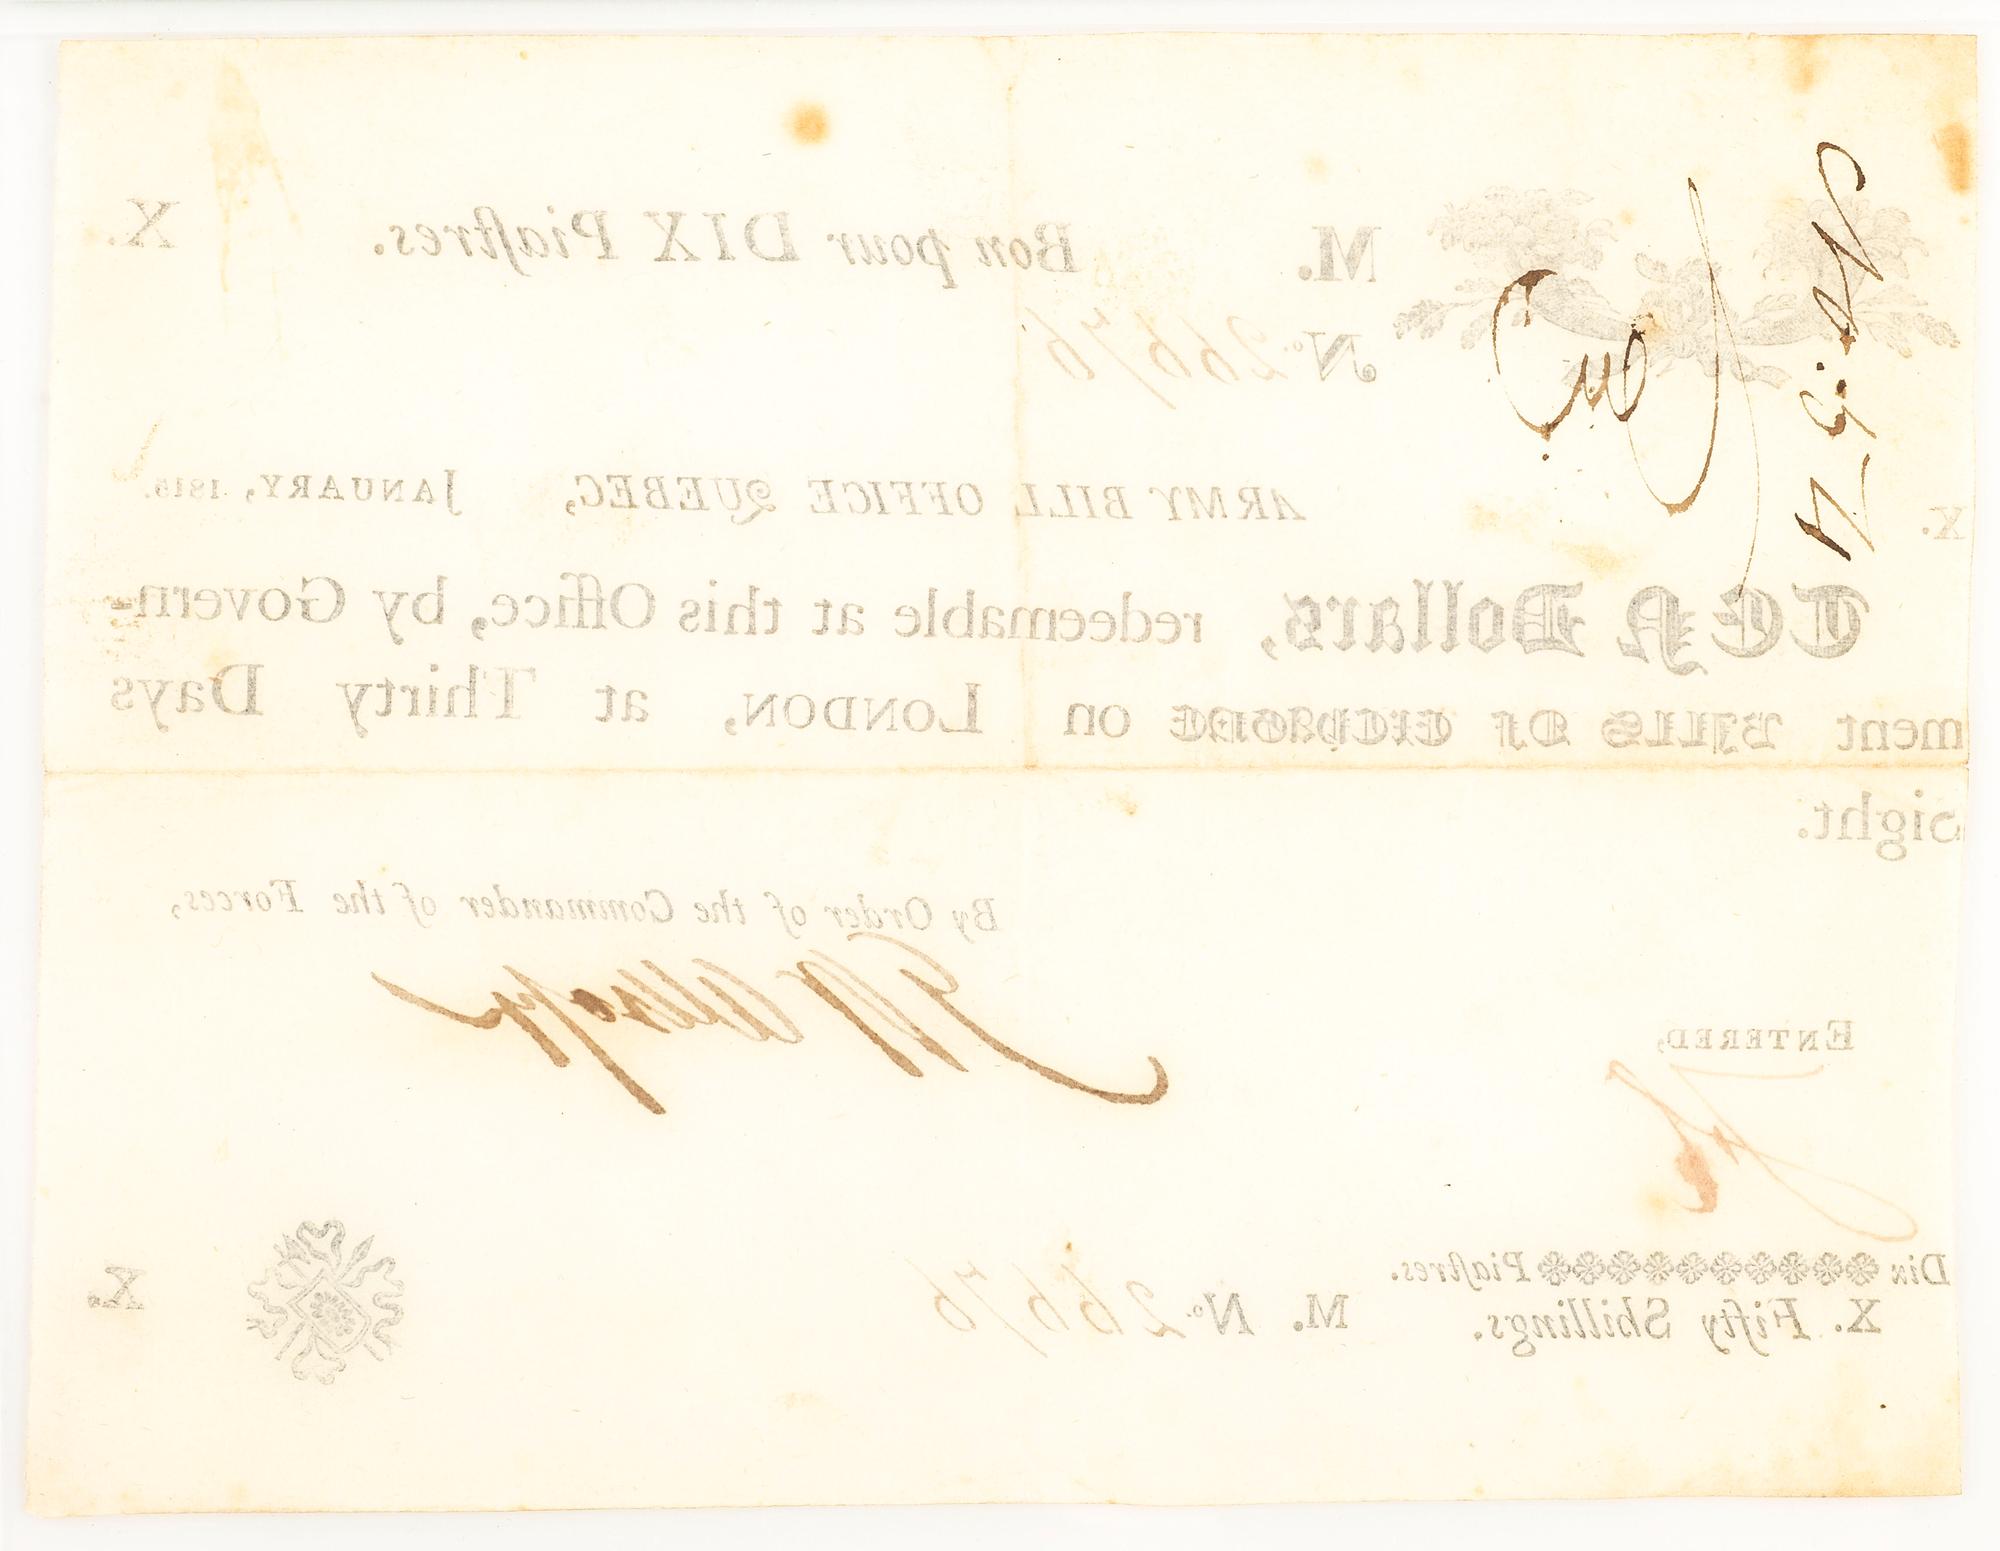 M. Bon pour DIX Piaſtres. X.
No. 26676
X. ARMY BILL OFFICE QUEBEC, JANUARY, 1815.
TEN Dollars, redeemable at this Office, by Govern-
ment BILLS OF EXCHANGE on LONDON, at Thirty Days
sight.
By Order of the Commander of the Forces,
ENTERED,
Dix Piaſtres.
X. Fifty Shillings. M. No. 26676 X.